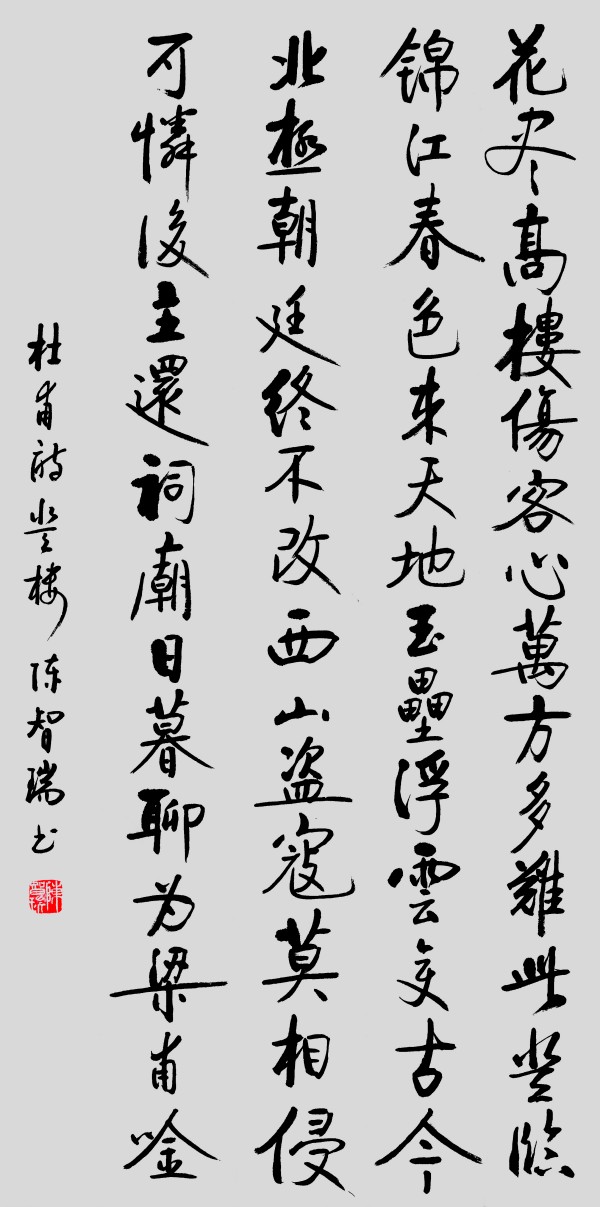 花尽高樓傷客心萬方多難此登臨
锦江春色来天地玉壘浮雲变古今
北極朝廷終不改西山盗寇莫相侵
可憐後主還祠廟日暮聊为梁甫唫
杜甫诗登楼 陈智瑞书